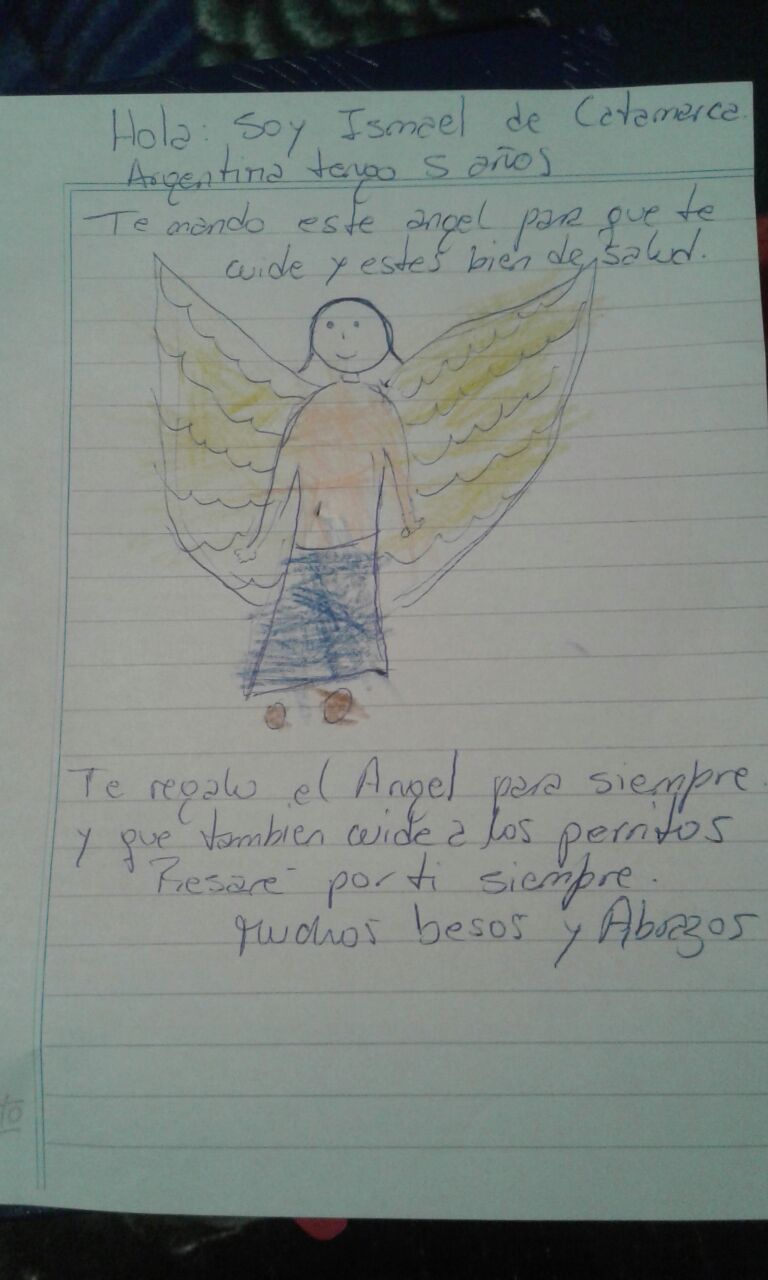 Hola: Soy Ismael de Catamarca.
Argentina tengo 5 años
Te mando este angel para que te
cuide y estes bien de salud.
Te regalo el Angel para siempre.
y que tambien cuide a los perritos
Resare por ti siempre.
Muchos besos y Abrazos